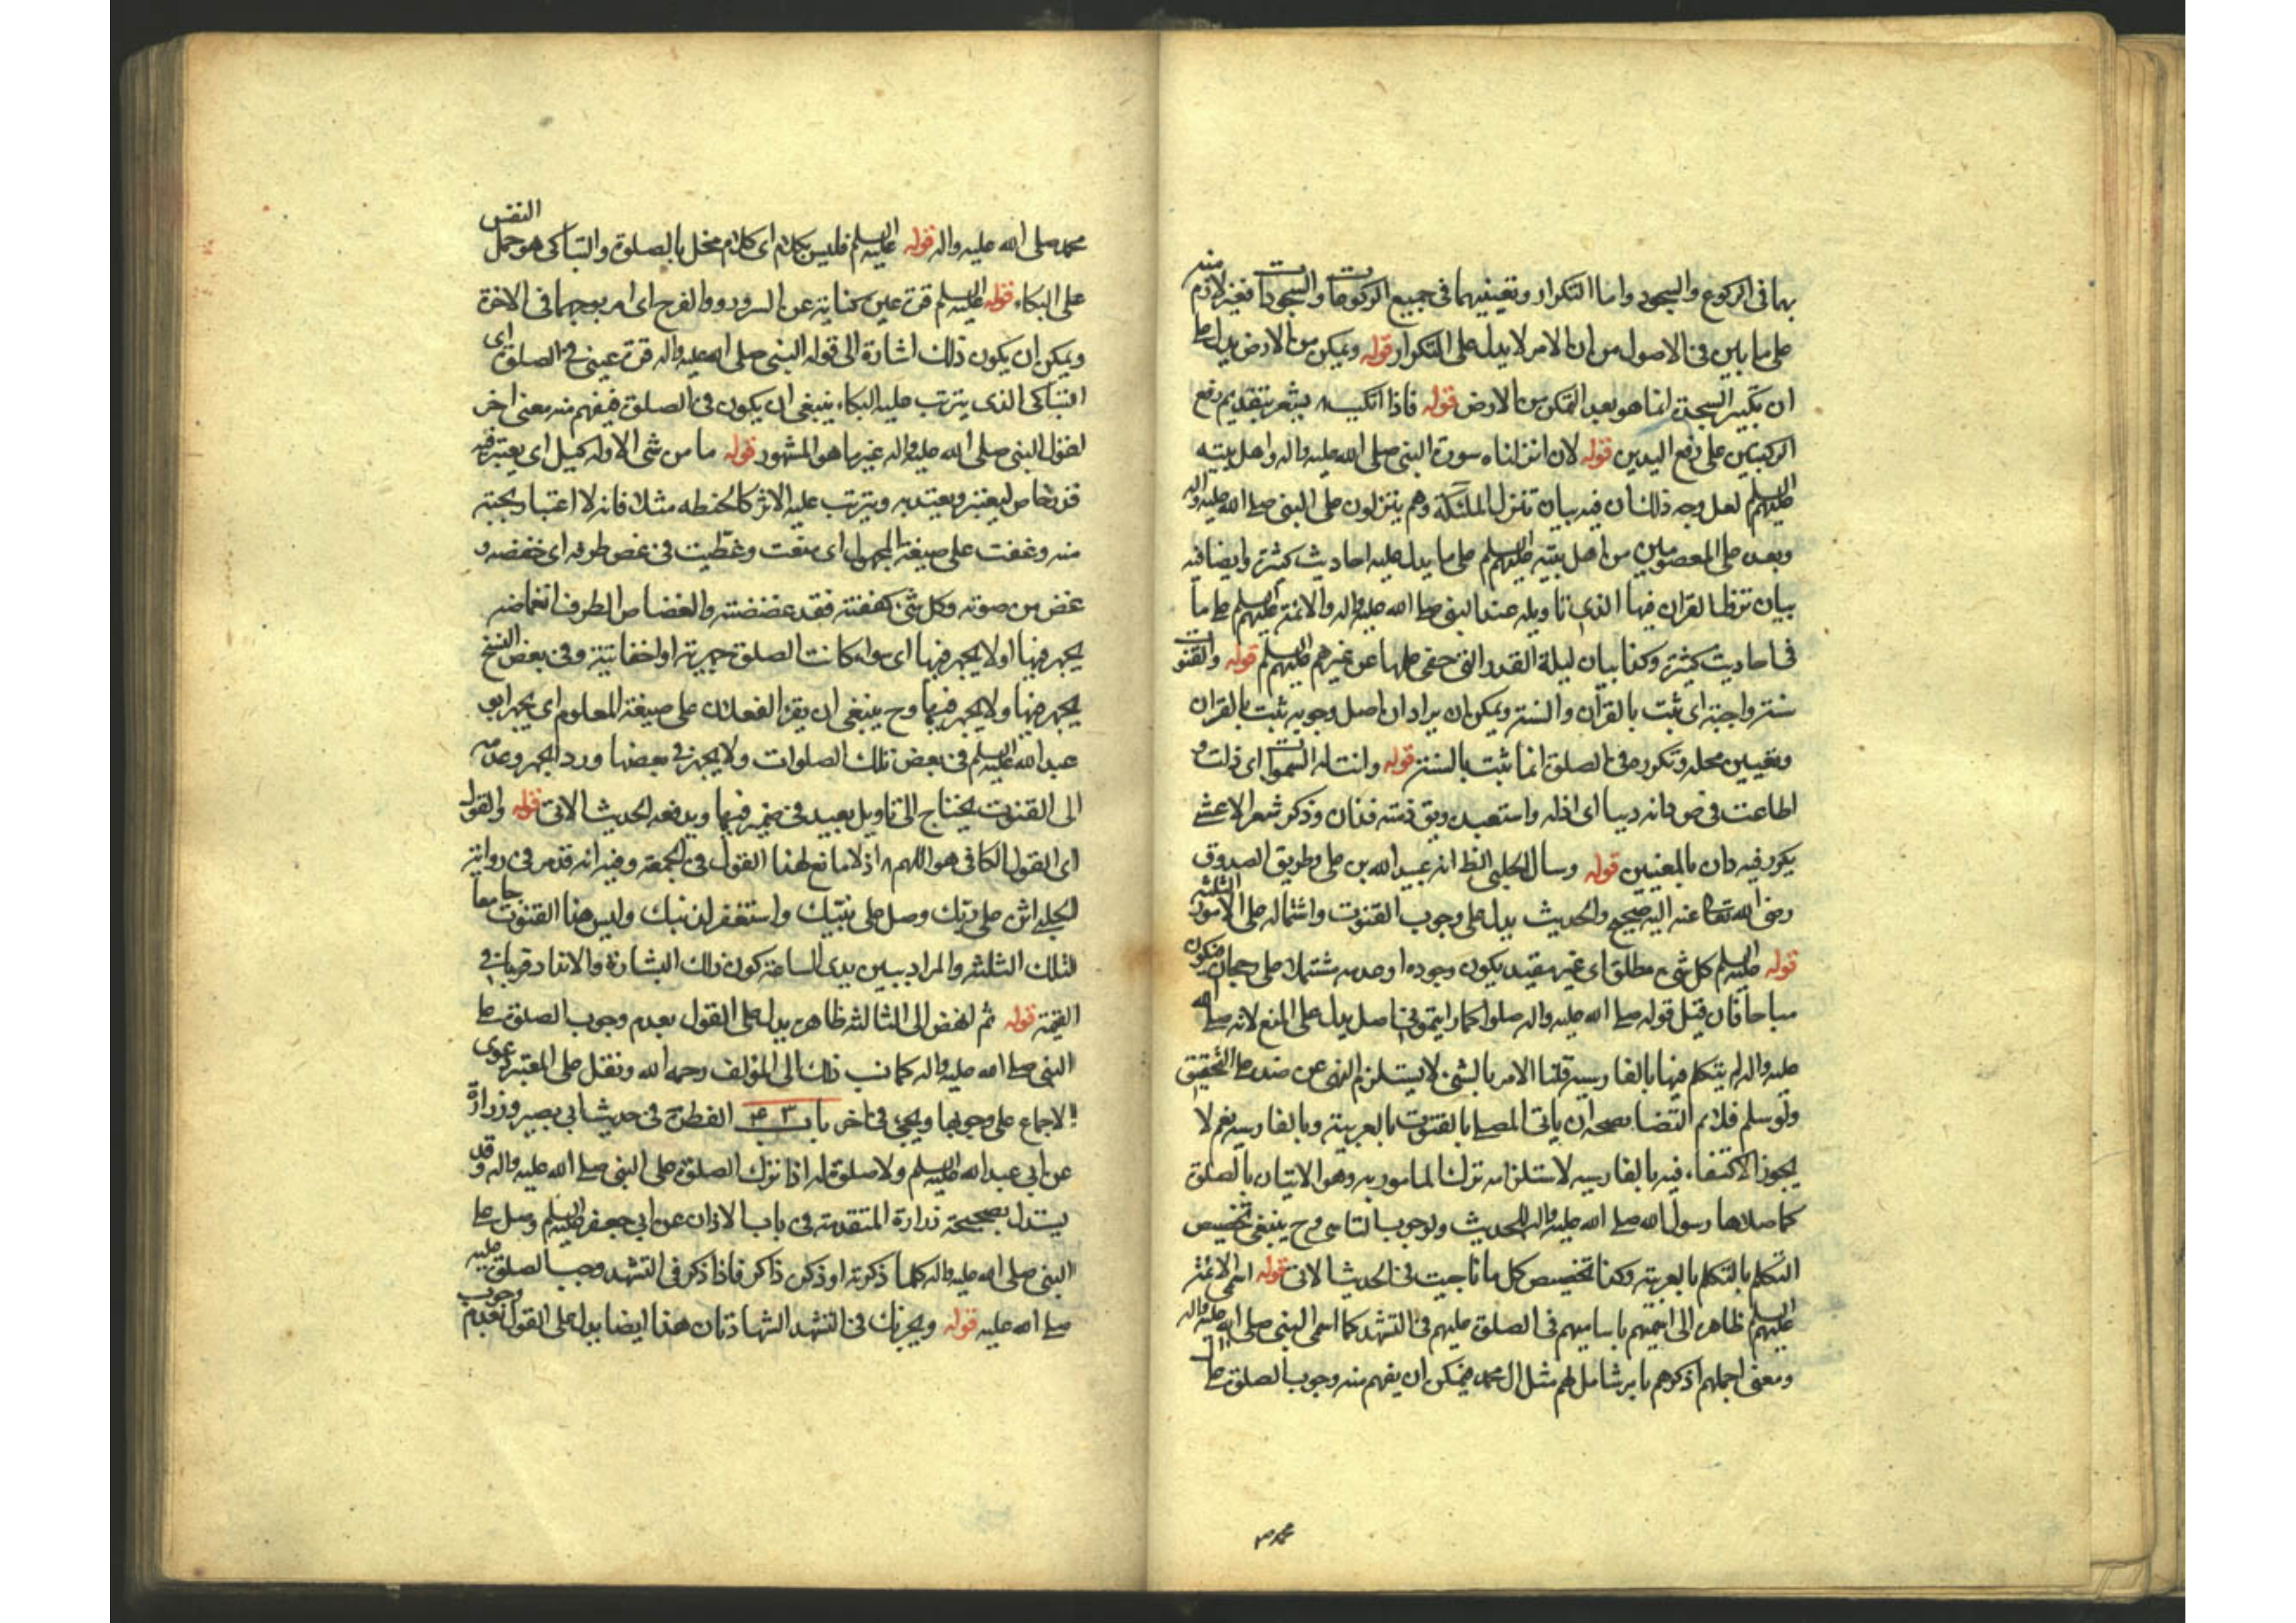 بها فى الركوع والسجود واما التكرار وتعيينهما فى جميع الركوعات والسجودات فغير لازم منه
على ما بين فى الاصول من ان الامر لا يدل على التكرار قوله ويمكن من الارض يدل على
ان تكبير السجدة انما هو بعد التمكن من الارض قوله فاذا اتكيت يشعر بتقديم رفع
الركبتين على رفع اليدين قوله لان انزلناه سورة النبى صلى الله عليه واله واهل بيته
عليهم السلم لعل وجه ذلك ان فيه بيان تنزل الملئكة وهم ينزلون على النبى صلى الله عليه واله
وبعده على المعصومين من اهل بيته عليهم السلم على ما يدل عليه احاديث كثيرة وايضا فيه
بيان القران فيها الذى تاويله عند النبى صلى الله عليه واله والائمة عليهم السلم على ما
فى احاديث كثيرة وكذا بيان ليلة القدر التى خفى علمها عن غيرهم عليهم السلم قوله والقنوت
سنة واجبة اى ثبت بالقرآن والسنة ويمكن ان يراد ان اصل وجوبه ثبت بالقران
وتعيين محله وتكرره فى الصلوة انما ثبت بالسنة قوله وانت له السموات اى ذلت و
اطاعت فى ص دانه دينا اى اذله واستعبده وذكر شعر الاعشى
يكون فيه دان بالمعنيين قوله وسال الحلبى الظ انه عبيد الله بن على وطريق الصدوق
رضى الله تعالى عنه اليه صحيح والحديث يدل على وجوب القنوت واشتماله على الامور الثلثة
قوله عليه السلم كل شىء مطلق اى غير مقيد يكون وجوده او عدمه مشتملا على رجحان فيكون
مباحا فان قيل قوله صلى الله عليه واله صلوا كما رايتمونى اصلى يدل على المنع لانه صلى الله
عليه واله لم يتكلم فيها بالفارسية قلنا الامر بالشئ لا يستلزم النهى عن ضده على التحقيق
ولو سلم فلا يتم التضاد صحة ان ياتى المصلى بالقنوت بالعربية وبالفارسية نعم لا
يجوز الاكتفاء فيه بالفارسية لاستلزامه ترك المامور به وهو الاتيان بالصلوة
كما صلاها رسول الله صلى الله عليه واله للحديث ولوجوب التاسى وح ينبغى تخصيص
التكلم بالتكلم بالعربية وكذا تخصيص كل ما ناجيت فى الحديث الاتى قوله اسمى الائمة
عليهم السلم ظاهره الى اسميهم باساميهم فى الصلوة عليهم فى التشهد كما اسمى النبى صلى الله عليه واله
ومعنى اجملهم اذكرهم بامر شامل لهم مثل ال محمد فيمكن ان يفهم منه وجوب الصلوة على ال
محمد ص
محمد صلى الله عليه واله قوله عليه السلم فليس بكلام اى كلام مخل بالصلوة والتباكى هو حمل النفس
على البكاء قوله عليه السلم قرة عين كناية عن السرور والفرح اى امر يوجبها فى الاخرة
ويمكن ان يكون ذلك اشارة الى قوله النبى صلى الله عليه واله قرة عينى فى الصلوة اى
التباكى الذى يترتب عليه البكاء ينبغى ان يكون فى الصلوة فيفهم منه معنى اخر
لقول النبى صلى الله عليه واله غير ما هو المشهور قوله ما من شئ الا وله كيل اى يعتبر فيه
قدر خاص ليعتبر ويعتد به ويترتب عليه الاثر كالحنطة مثلا فانه لا اعتبار بحبة
منه وغضت على صيغة المجهول اى منعت وغطيت فى غض طرفه اى خفضه و
غض من صوته وكل شئ كففته فقد غضضته والغضاض الطرف انغماضه
يجهر فيها او لا يجهر فيها اى سواء كانت الصلوة جهرية او اخفاتية وفى بعض النسخ
يجهر فيها ولا يجهر فيها وح ينبغى ان يقرأ الفعلان على صيغة المعلوم اى يجهر ابو
عبد الله عليه السلم فى بعض تلك الصلوات ولا يجهر فى بعضها ورد الجهر وعدمه
الى القنوت يحتاج الى تاويل بعيد فى ضمير فيها ويدفعه الحديث الاتى قوله والقول
اى القول الكافى هو اللهم اذ لا مانع لهذا القول فى الجمعة وفيه انه قد مر فى رواية
الحلبى اثن على ربك وصل على نبيك واستغفر لذنبك وليس هذا القنوت جامعا
لتلك الثلثة والمراد ببين يدى الساعة كون ذلك البشارة والانذار قريبا فى
القيمة قوله ثم انهض الى الثالثة ظاهره يدل على القول بعدم وجوب الصلوة على
النبى صلى الله عليه واله كما نسب ذلك الى المؤلف رحمه الله ونقل على المعتبر دعوى
الاجماع على وجوبها ويجئ فى اخر باب الفطرة فى حديث ابى بصير وزرارة
عن ابى عبد الله عليه السلم ولا صلوة له اذا ترك الصلوة على النبى صلى الله عليه واله وقد
يستدل بصحيحة زرارة المتقدمة فى باب الاذان عن ابى جعفر عليه السلم وصل على
النبى صلى الله عليه واله كلما ذكرته او ذكره ذاكر فاذا ذكر فى التشهد وجب الصلوة عليه
صلى الله عليه قوله ويجزيك فى التشهد الشهادتان هذا ايضا يدل على القول بعدم وجوب